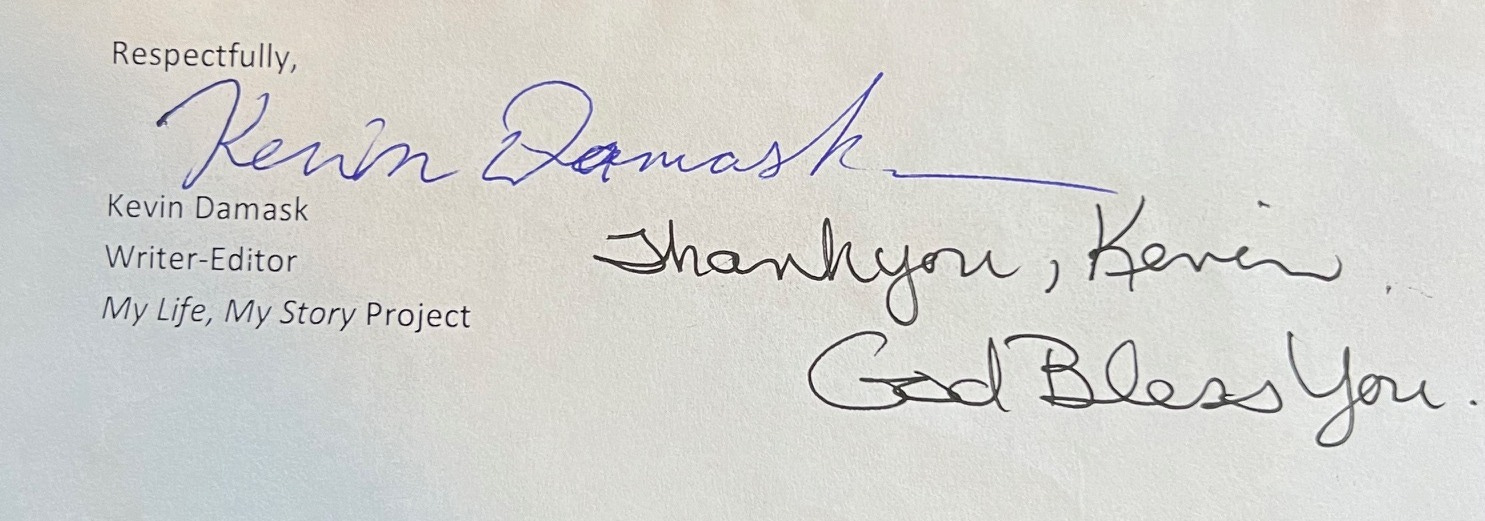 Respectfully,
Kevin Damask
Kevin Damask
Writer-Editor
My Life, My Story Project
Thankyou, Kevin.
God Bless You.